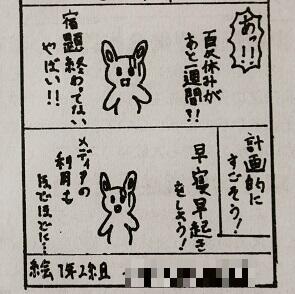 あっ!!
夏休みが
あと一週間!!
宿題終わってない
やばい!!
計画的に
すごそう!
早寝早起き
をしよう!
メディアの
利用も
ほどほどに…
絵 1年2組